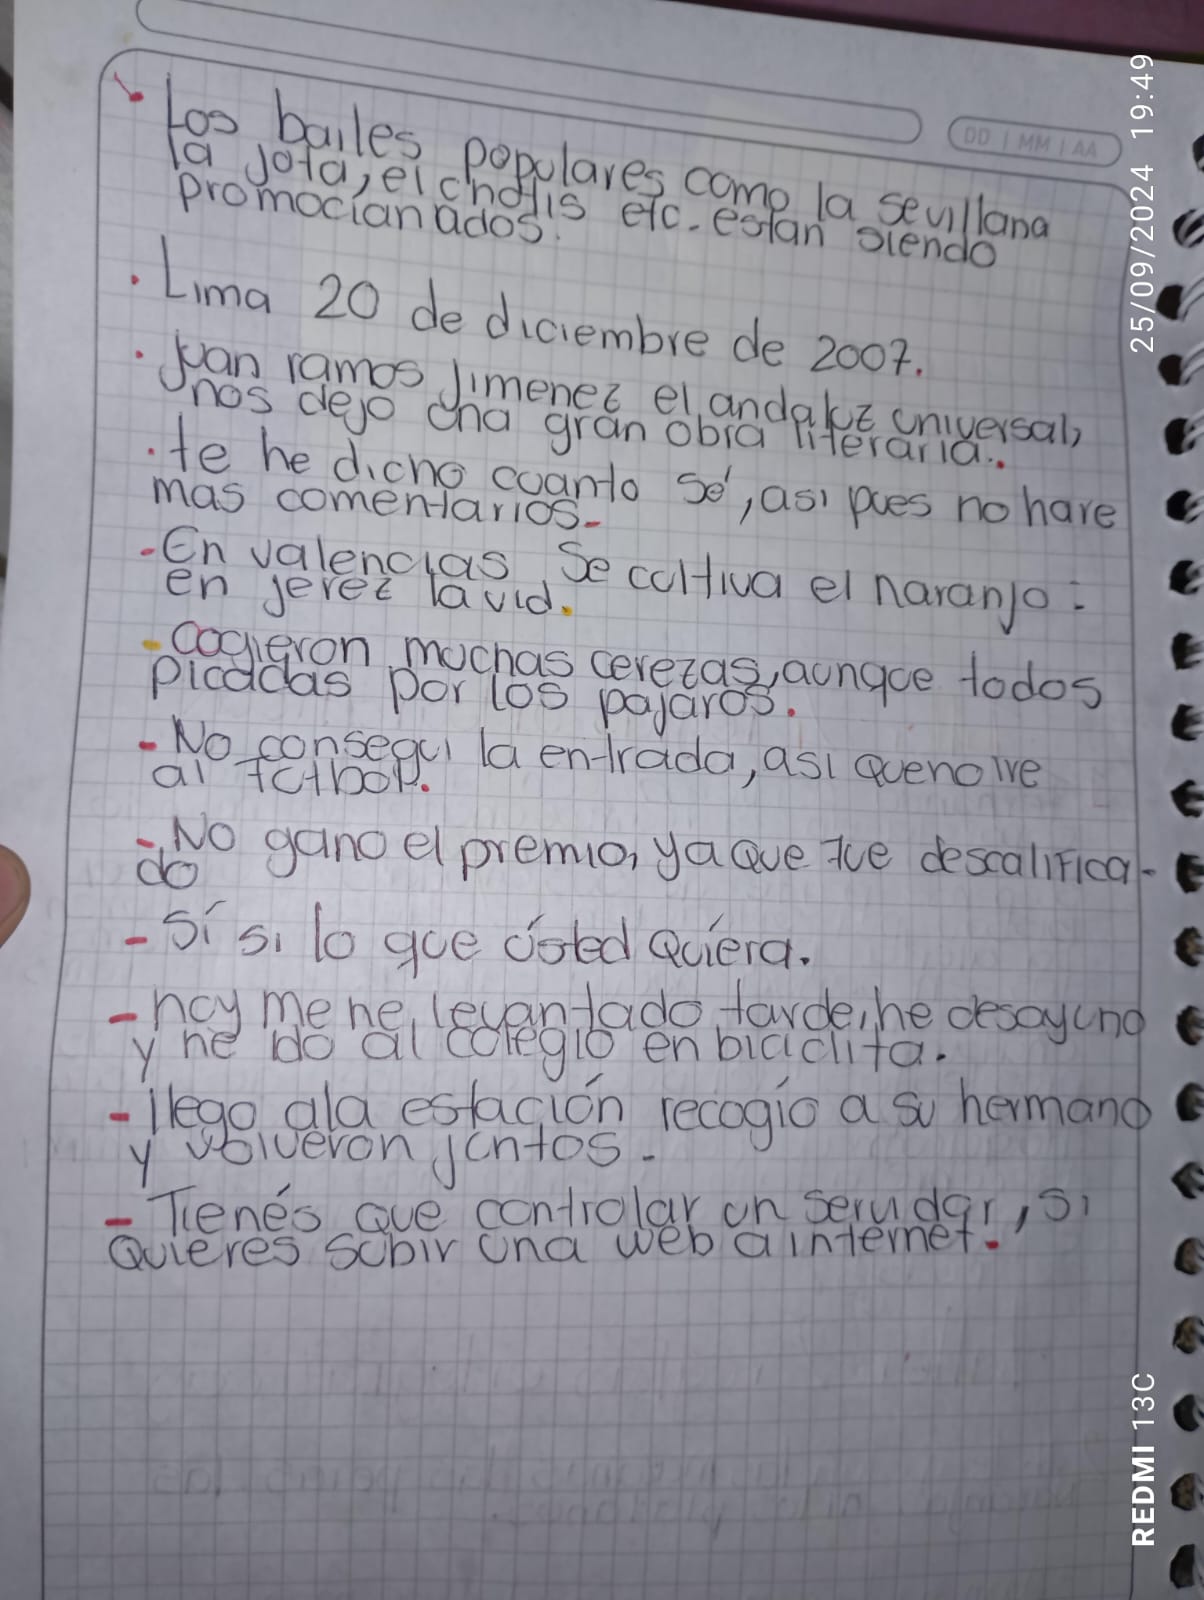 DD | MM | AA
Los bailes populares como la sevillana
la jota, el chotis etc. estan siendo
promocianados.
· Lima 20 de diciembre de 2007.
· juan ramos Jimenez el andaluz universal,
nos dejo una gran obra literaria.
· te he dicho cuanto sé, asi pues no hare
mas comentarios.
- En valencias se cultiva el naranjo:
en jerez la vid.
- cogieron muchas cerezas, aunque todos
picadas por los pajaros.
- No consegui la entrada, asi que no ire
al
- No gano el premio, ya que fue descalifica-
do
- Sí si lo que usted quiera.
- hoy me he levantado tarde, he desayuno
y he ido al colegio en biciclita.
- llego ala estación recogio a su hermano
y volveron juntos.
- Tienés que controlar un servidar, si
quieres subir una web a internet.
25/09/2024 19:49
REDMI 13C